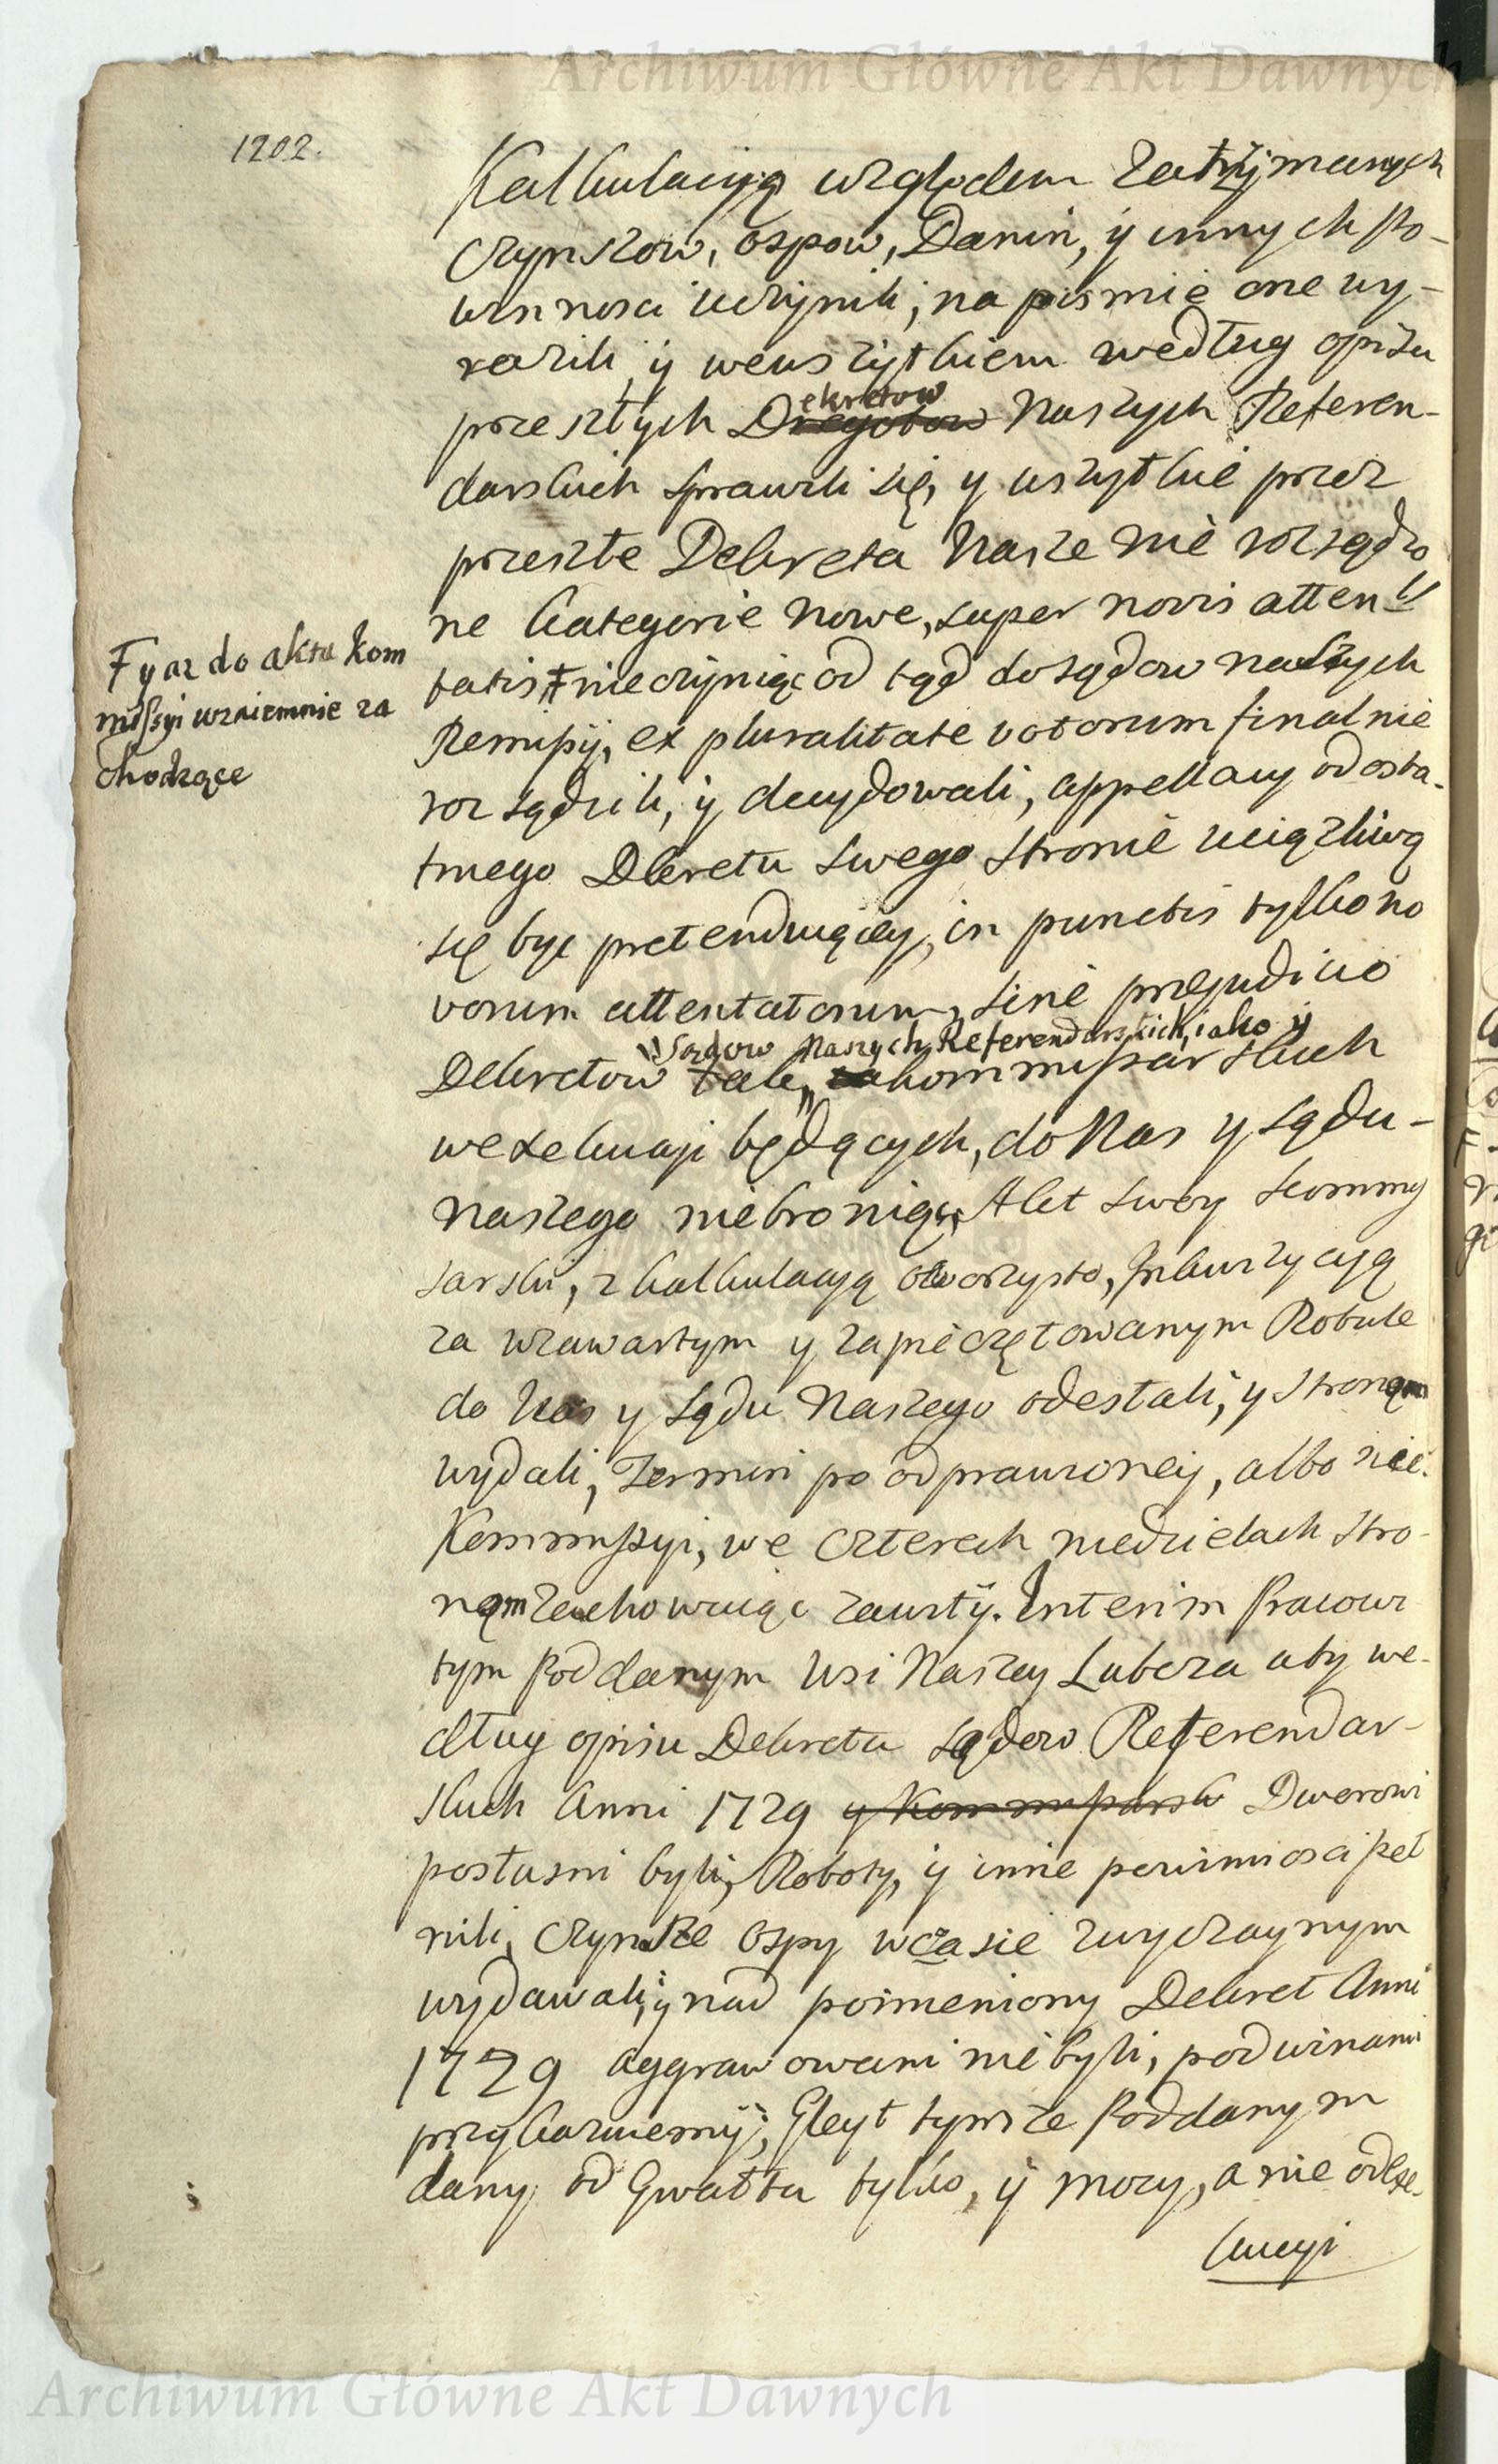 Archiwum Główne Akt Dawnych
1202.
Kalkulacyją względem zatrzymanych
czynszow, ospow, Danin, y innych Po-
winnosci uczynili, na pismie one wy-
razili, y wewszytkiem według opisu
ekretow
przeszłych D Naszych Referen-
darskich sprawili się, y wszytkie przez
przeszłe Dekreta Nasze nie rozsądzo
ne kategorie nowe, super novis atten
tatis Ŧ nieczyniąc od tąd do sądow naszych
Remissÿ, ex pluralitate votorum finalnie
rozsądzili, y decydowali, appellacy od osta-
tniego Dkretu swego stronie uciążliwą
się być pretenduiącey, in punctis tylko no
vorum attentatorum, sine prejudicio
Sądow Naszych Referendarskich, iako ÿ
Dekretow tak kommissarskich
wexekucyi będących, do Nas y sądu
Naszego niebroniąc, Akt swoy kommis
sarski, z kalkulacyą otworzysto, Inkwizycyą
za wzawartym y zapieczętowanym Rotule
do Nas y sądu Naszego odesłali, y stronom
wydali, Termin po odprawioney, albo nie
Kommissyi, we czterech niedzielach stro-
nom zachowuiąc zawitÿ. Interim Pracowi
tym Poddanym wsi Naszey Lubcza aby we-
dług opisu Dekretu sądow Referendar-
skich Anni 1729 y Kommissarsk Dworowi
posłuszni byli, Roboty, y inne powinnosci peł
nili, czynsze ospy wczasie zwyczaynym
wydawali, y nad pomieniony Dekret Anni
1729 aggrawowani nie byli, pod winami
przykazuiemÿ; Gleyt tymże Poddanym
dany od Gwałtu tylko, y mocy, a nie od exe-
kucyi
Ŧ y az do aktu kom
missyi wzaiemnie za
chodzące
Archiwum Główne Akt Dawnych